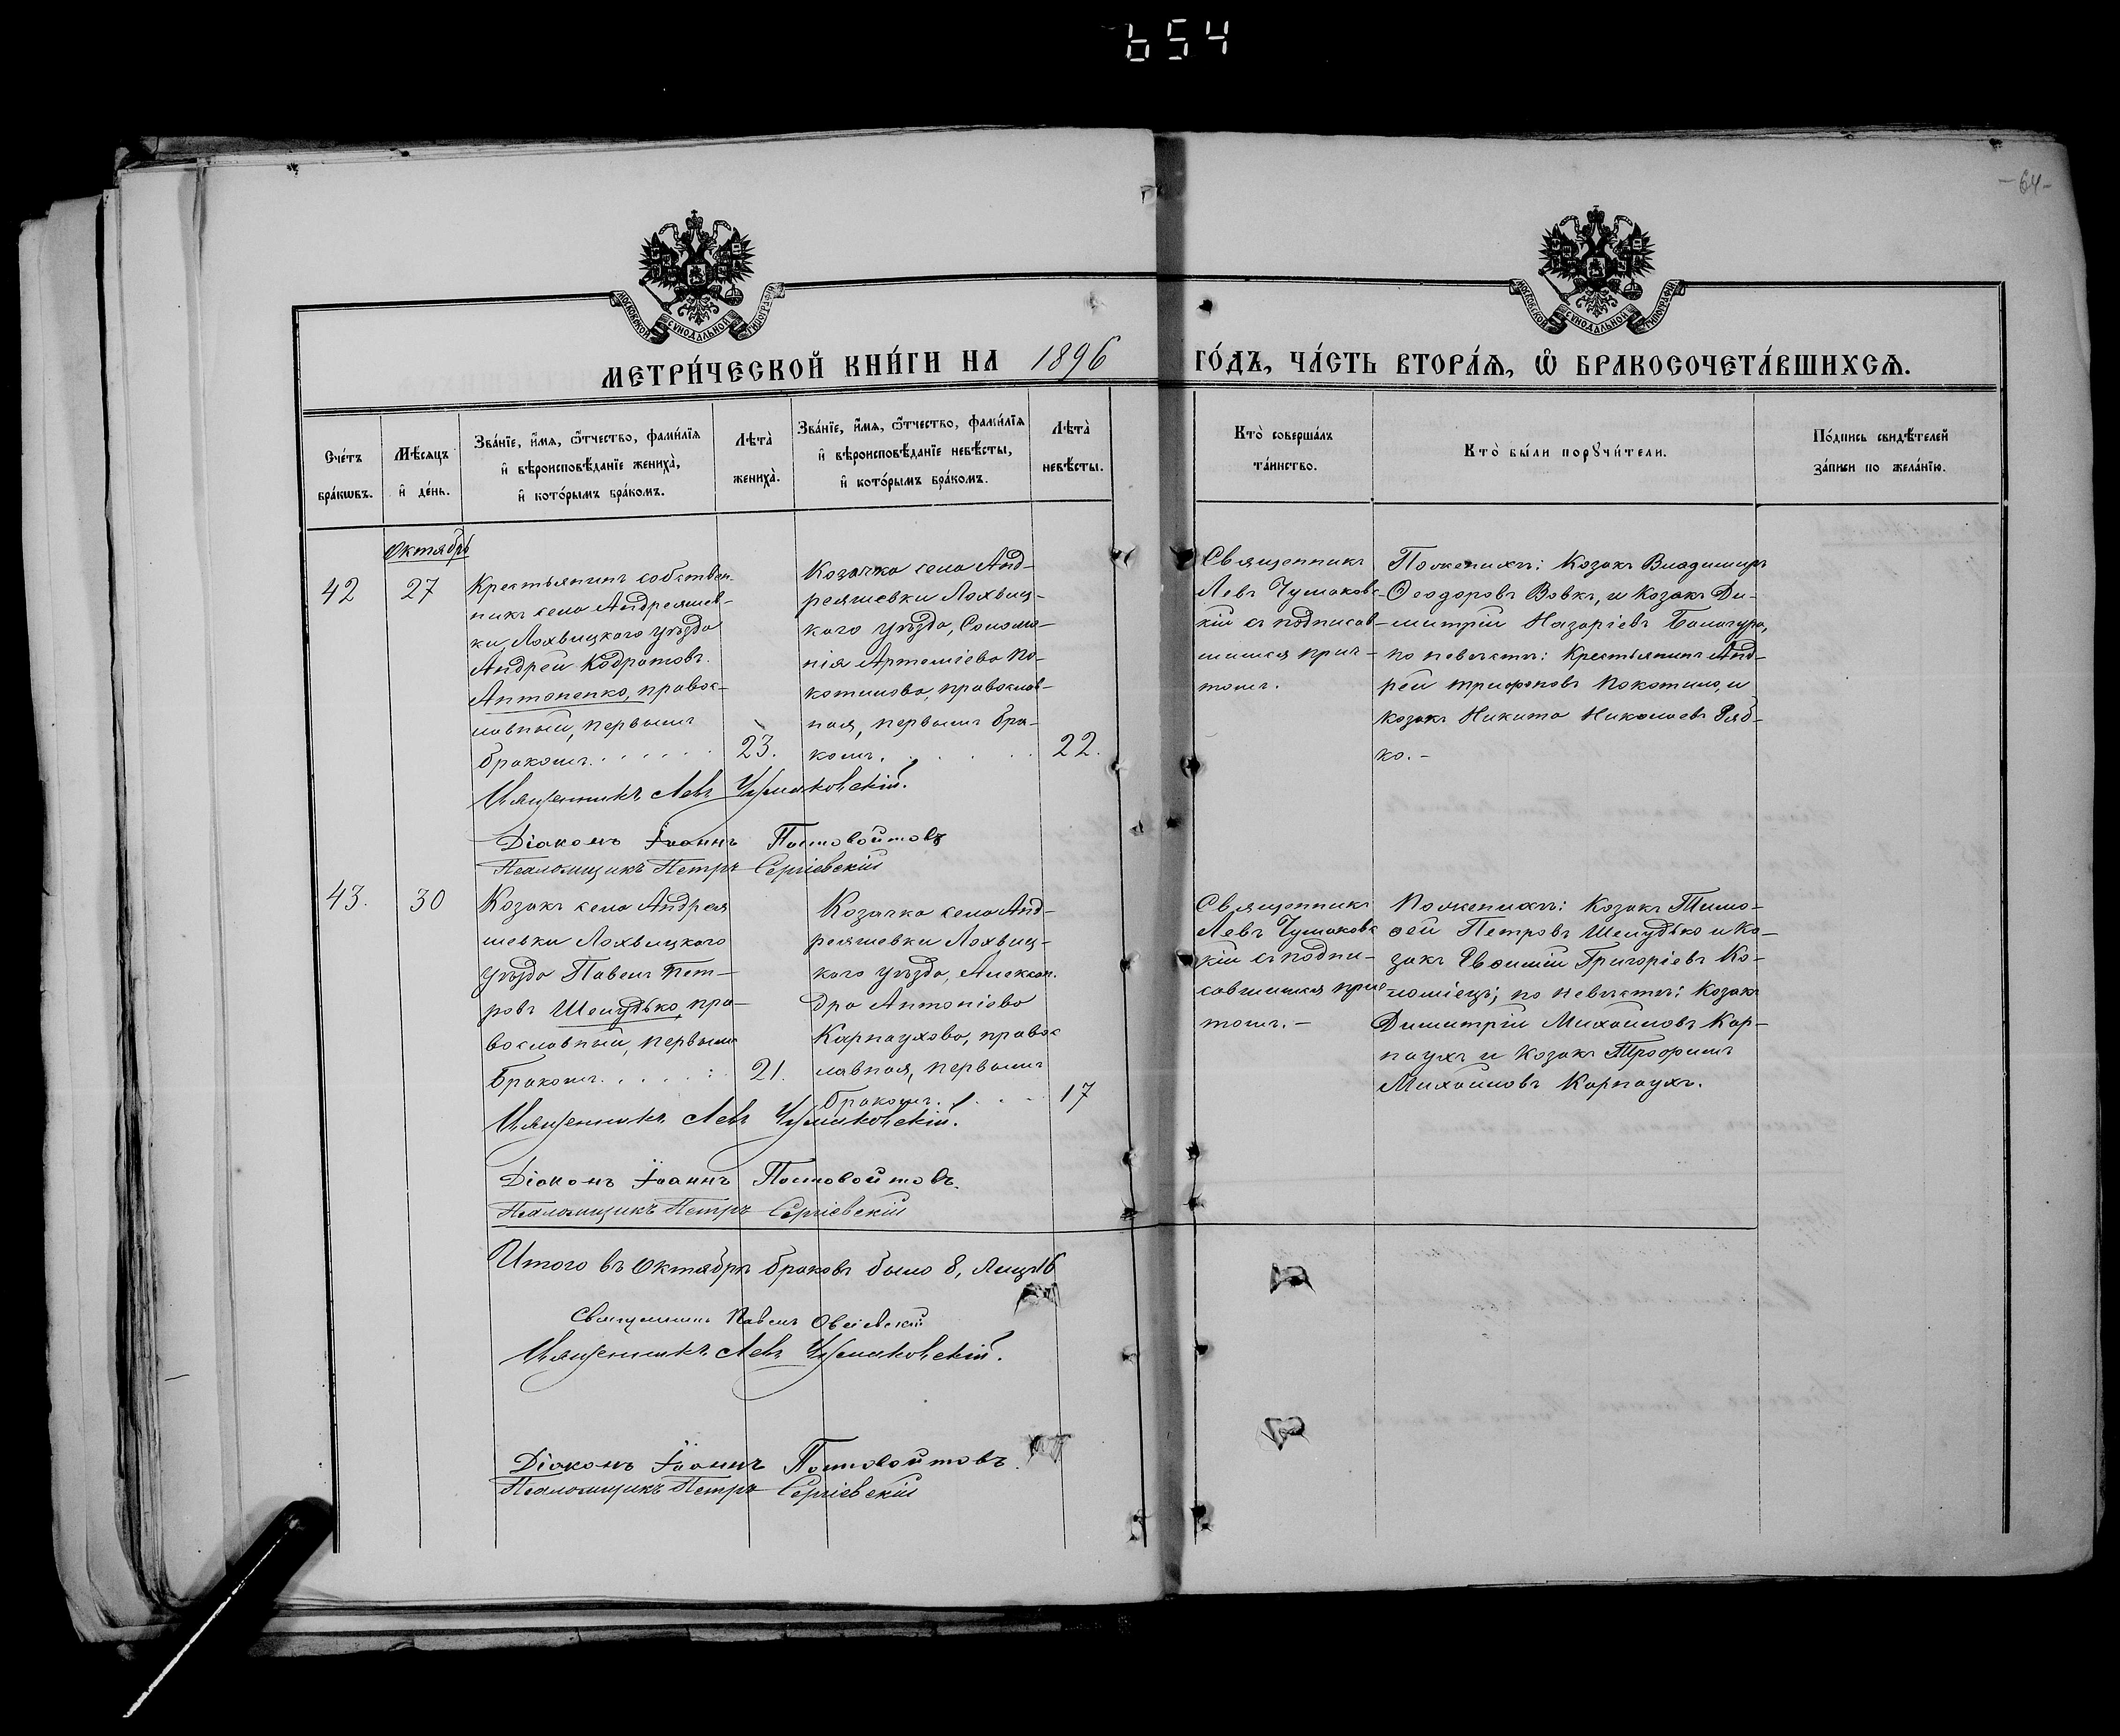 654
-64-
МОСКОВСКОЙ СѴНОДАЛЬНОЙ ТИПОГРАФІИ
МОСКОВСКОЙ СѴНОДАЛЬНОЙ ТИПОГРАФІИ
МЕТРИ́ЧЕСКОЙ КНИ́ГИ НА 1896 ГО́ДЪ, ЧА́СТЬ ВТОРА́Ѧ, Ѡ҆ БРАКОСОЧЕТА́ВШИХСѦ.
Сче́тъ
бра́кѡвъ.
Мѣ́сяцъ
и҆ де́нь.
Зва́нїе, и҆́мя, ѻ҆́тчество, фами́лїя
и҆ вѣроисповѣ́данїе жениха̀,
и҆ кото́рымъ бра́комъ.
Лѣ́та̀
жениха̀.
Зва́нїе, и҆́мя, ѻ҆́тчество, фами́лїя
и҆ вѣроисповѣ́данїе невѣ́сты,
и҆ кото́рымъ бра́комъ.
Лѣ́та̀
невѣ́сты.
Кто̀ соверша́лъ
та́инство.
Кто̀ бы́ли порꙋчи́тели.
По́дпись свидѣ́телей
за́писи по жела́нїю.
Октябрь
42
27
Крестьянинъ собствен-
никъ села Андреяшев-
ки, Лохвицкаго уѣзда
Андрей Кодратовъ
Антоненко, правос-
лавный, первымъ
бракомъ.
23.
Козачка села Анд-
реяшевки Лохвиц-
каго уѣзда, Соломо-
нія Артеміева По-
котилова, православ-
ная, первымъ бра-
комъ.
22.
Священникъ
Левъ Чумаковс-
кій съ подписав-
шимся прич-
томъ.
По женихѣ: Козакъ Владимиръ
Ѳеодоровъ Вовкъ, и Козакъ Ди-
митрій Назаріевъ Балагура,
по невѣстѣ: Крестьянинъ Анд-
рей Трифоновъ Покотило, и
козакъ Никита Николаевъ Ряб-
ко.-
Священникъ Левъ Чумаковскій.
Діаконъ Іоаннъ Постовойтовъ
Псаломщикъ Петръ Сергіевскій
43.
30
Козакъ села Андрея
шевки Лохвицкаго
уѣзда Павелъ Пет-
ровъ Шелудько, пра-
вославный, первымъ
бракомъ.
21.
Козачка села Анд-
реяшевки Лохвиц-
каго уѣзда, Алексан-
дра Антоніова
Карнаухова, правос
лавная, первымъ
бракомъ.
17
Священникъ
Левъ Чумаковс
кій съ подпи-
савшимся прич
томъ.-
По женихѣ: Козакъ Тимо-
ѳей Петровъ Шелудько и Ко-
закъ Евѳимій Григоріевъ Ко-
ломіецъ; по невѣстѣ: Козакъ
Димитрій Михаиловъ Кар-
наухъ и Козакъ Трофимъ
Михаиловъ Карнаухъ.
Священникъ Левъ Чумаковскій.
Діаконъ Іоаннъ Постовойтовъ.
Псаломщикъ Петръ Сергіевскій
Итого въ Октябрѣ браковъ было 8, лицъ 16
Священникъ Павелъ
Священникъ Левъ Чумаковскій.
Діаконъ Іоаннъ Постовойтовъ.
Псаломщикъ Петръ Сергіевскій